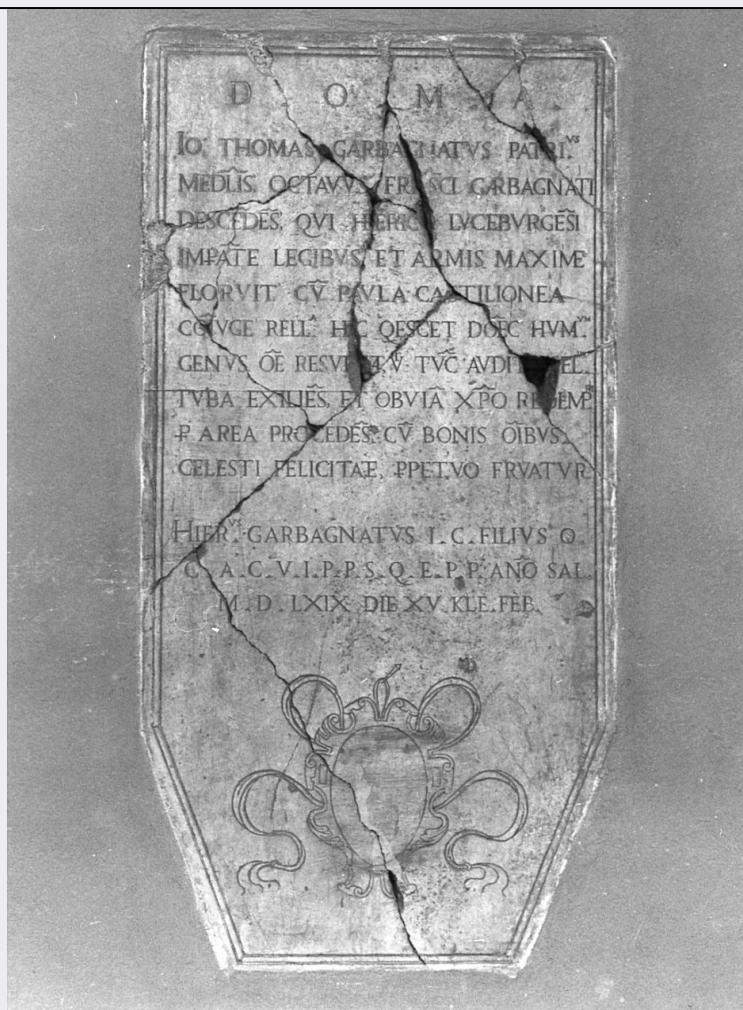 D O M A
IO. THOMAS GARBAGNATVS PATRI.VS
MEDL̃IS. OCTAVVS FRÃSCI GARBAGNATI
DESCẼDẼS, QVI HẼRICO LVCEBVRGẼSI
IMPÃTE LEGIBVS, ET ARMIS MAXIME
FLORVIT CṼ PAVLA CASTILIONEA
CÕIVGE RELL.A HIC QESCET DÕEC HVM.VM
GENVS ÕE TVC̃ AVDITA
TVBA EXILIẼS, ET OBVIÃ XP̃O REDEMP.
P̱ AREA PROCEDẼS, CṼ BONIS ÕIBVS,
CELESTI FELICITAE, P̱PETVO FRVATVR
HIER.VS GARBAGNATVS I.C. FILIVS Q.
C. A.C.V.I.P.P.S.Q.E.P.P. AÑO SAL.
M.D.LXIX. DIE XV. KLE. FEB.